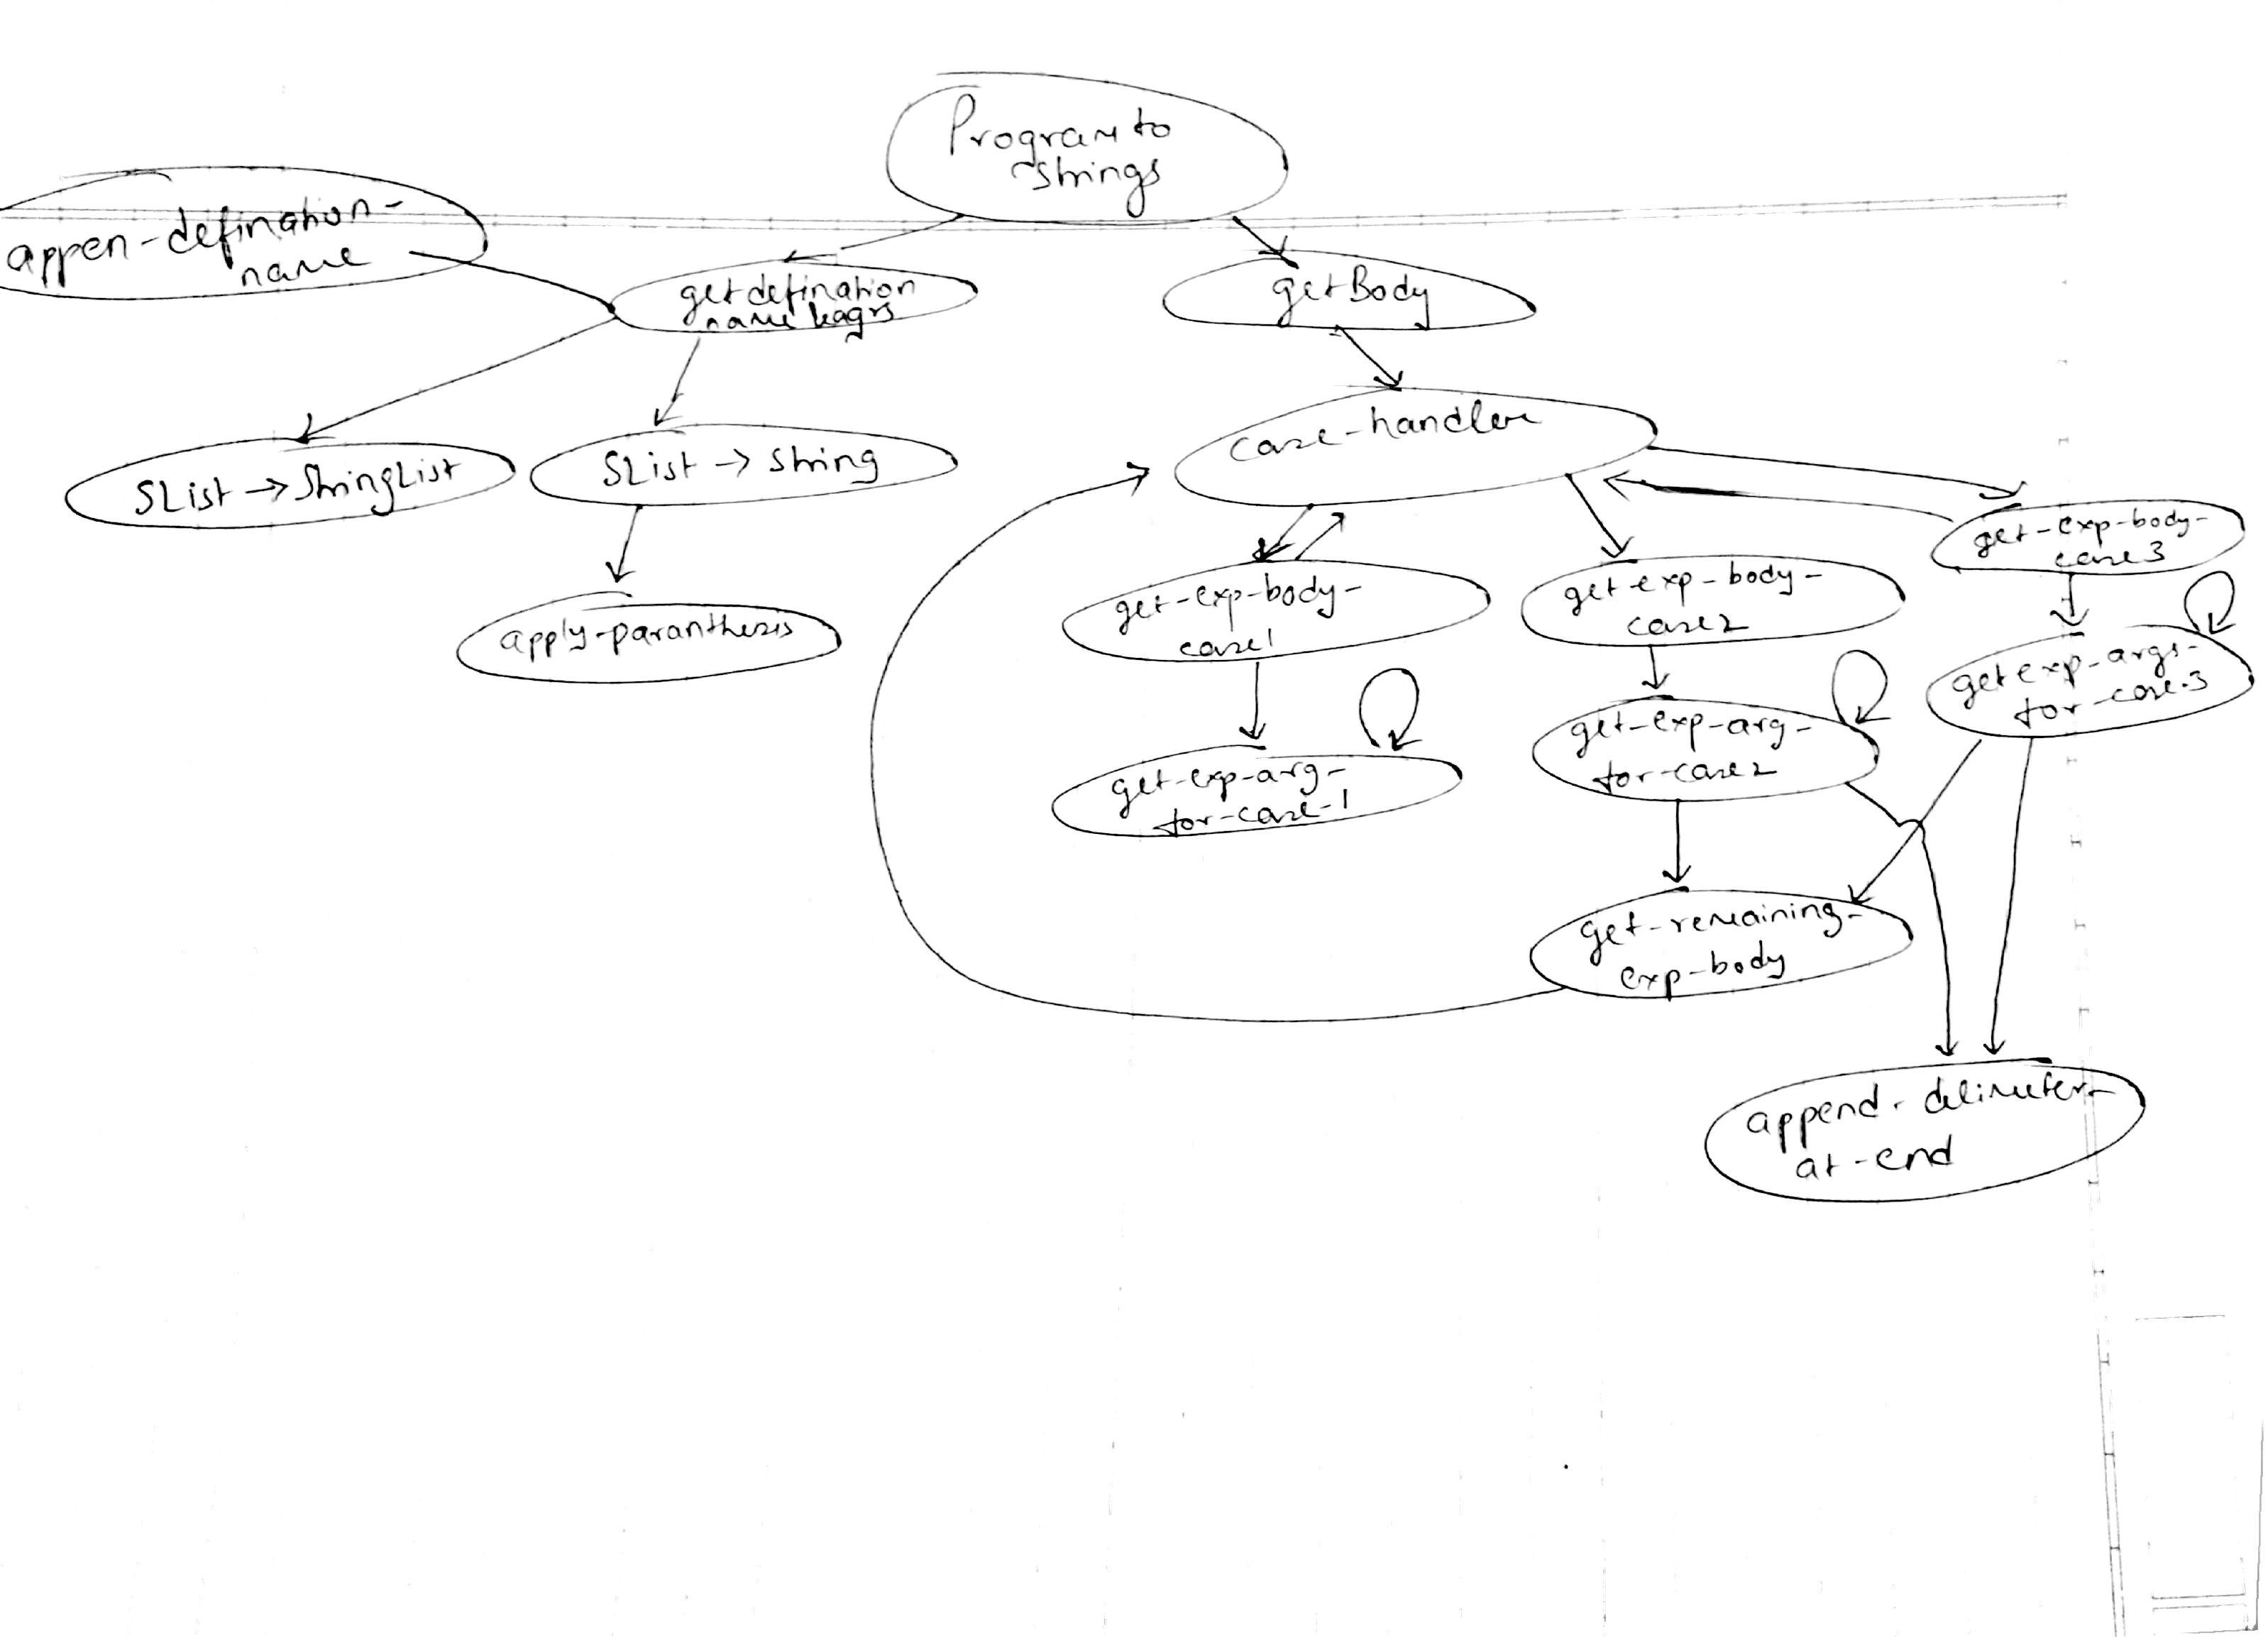 Program to
strings
appen-defination-
name
getdefination
name &agrs
getBody
case-handler
SList -> StringList
SList -> string
get-exp-body-
case3
apply-paranthesis
get-exp-body-
case1
get-exp-body-
case2
getexp-args-
for-case-3
get-exp-arg-
for-case-1
get-exp-arg-
for-case2
get-remaining-
exp-body
append-delimeter-
at-end